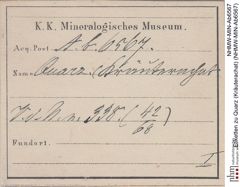 K. K. Mineralogisches Museum.
Acq. Post. A.b. 6567.
Name: Quarz (Kräuterachat
J. d. M. n. 338. (42/68
Fundort:
I
NHMW-MIN-Ab6567
Etiketten zu Quarz (Kräuterachat) (NHMW-MIN-Ab6567)
nhm